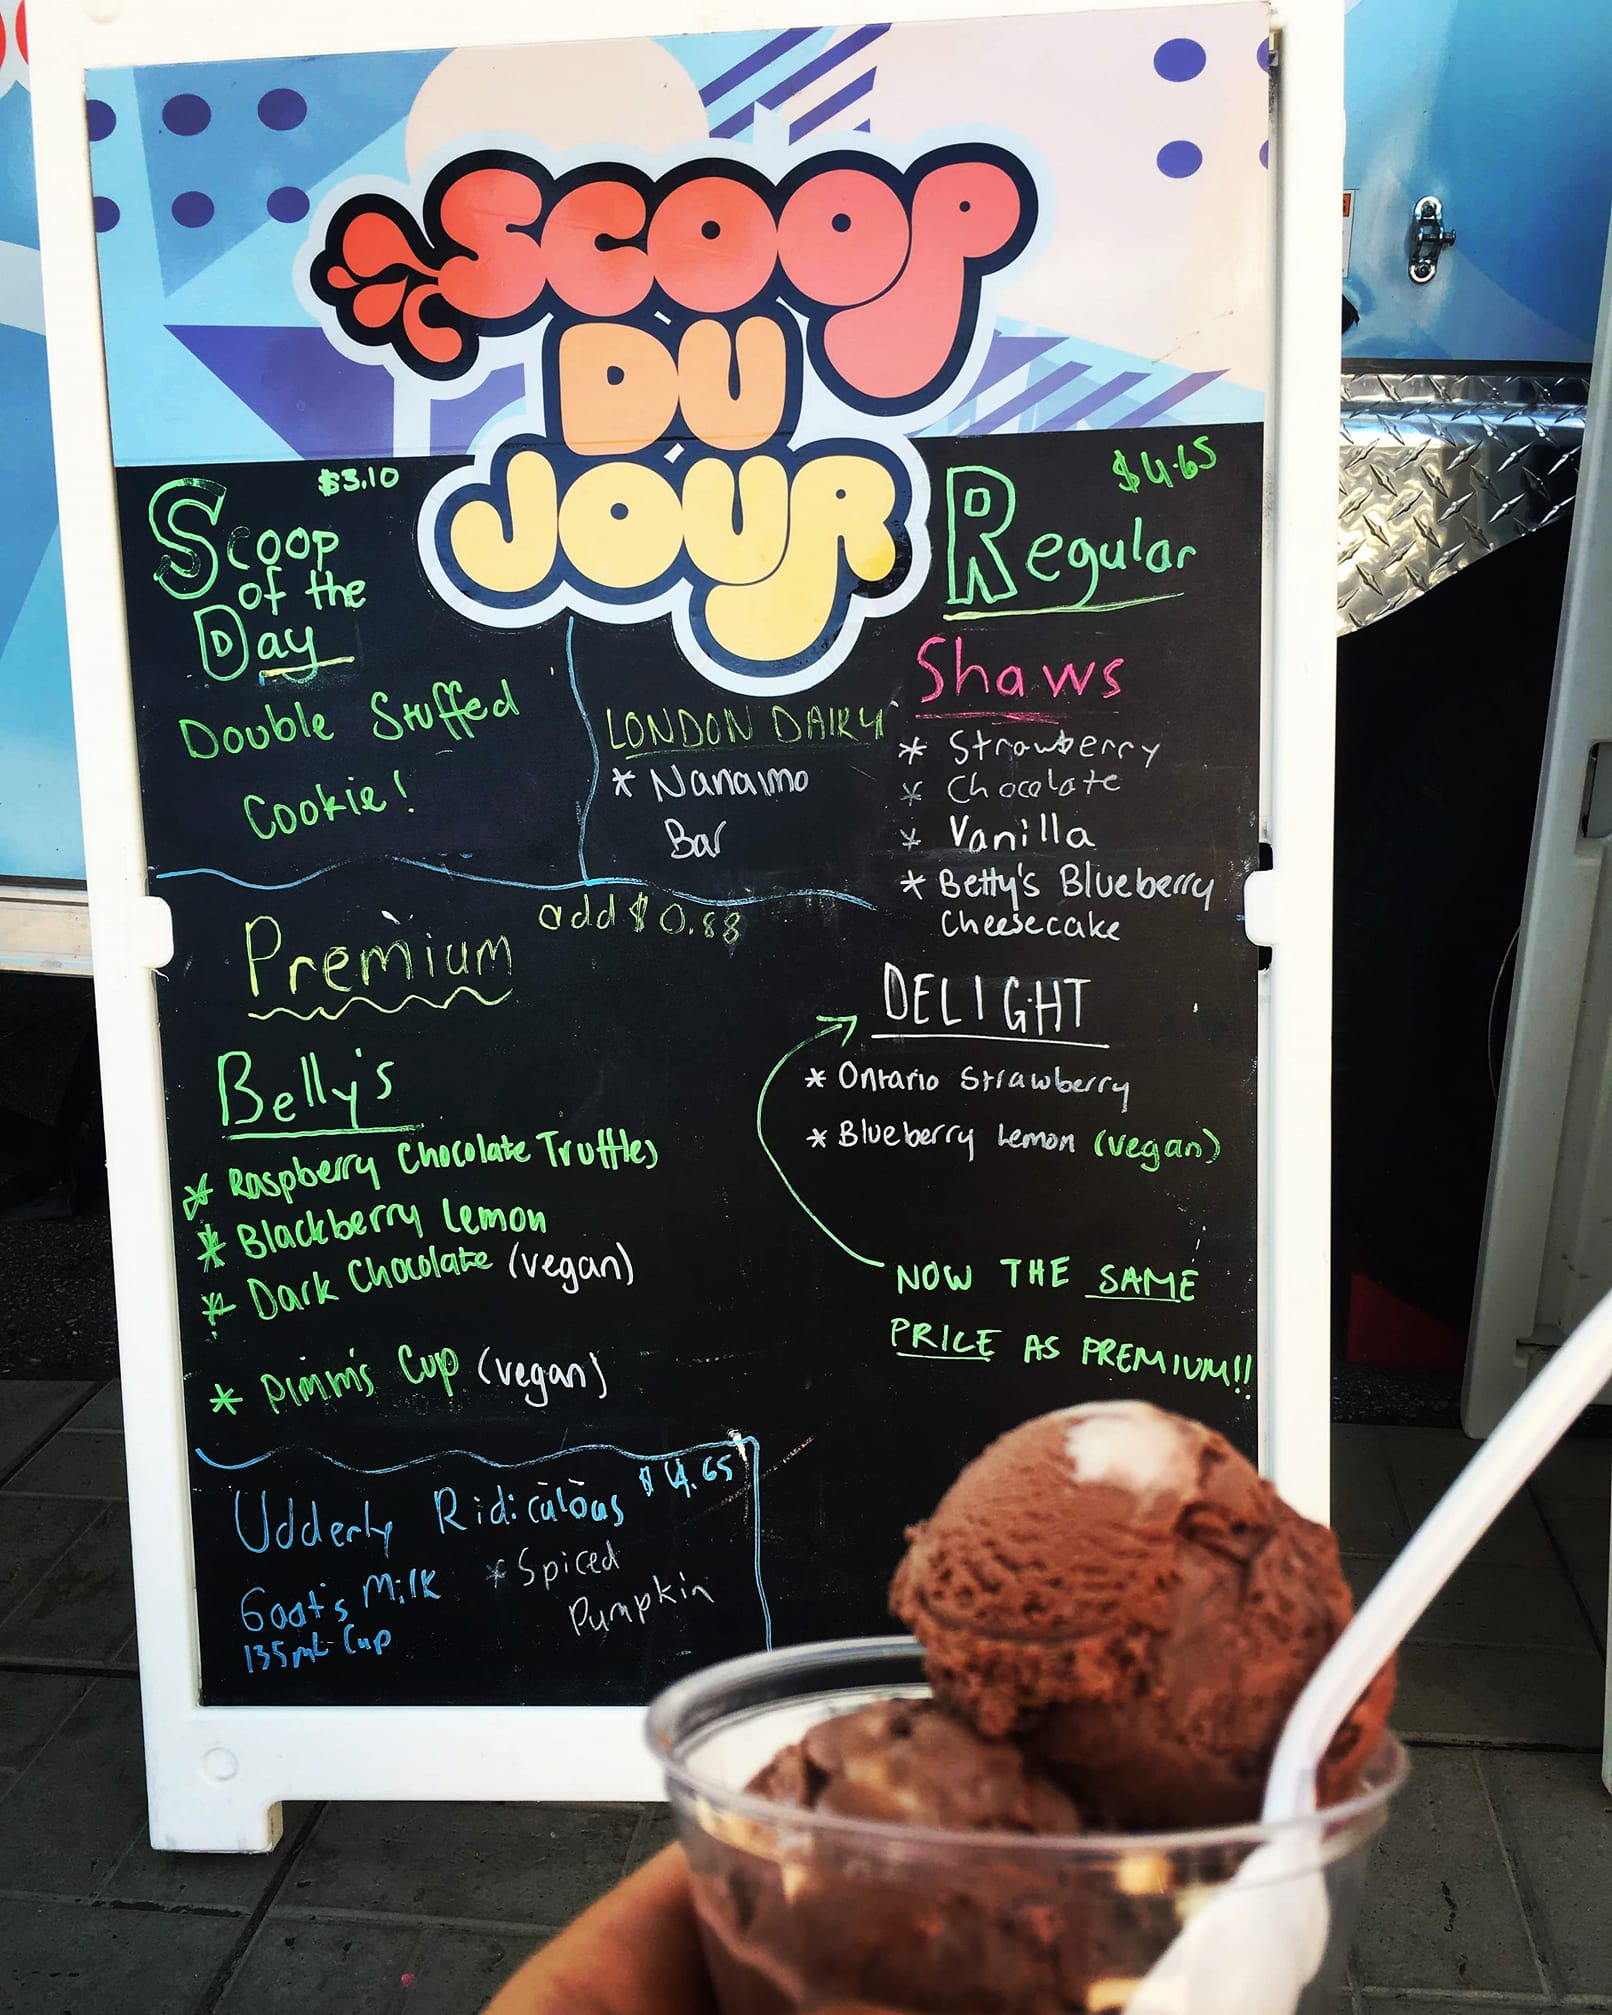 SCOOP
DU
JOUR
$3.10
Scoop
of the
Day
Double Stuffed
Cookie!
LONDON DAIRY
* Nanaimo
Bar
$4.65
Regular
Shaws
* Strawberry
* Chocolate
* Vanilla
* Betty's Blueberry
Cheesecake
Premium add $0.88
Belly's
* Raspberry Chocolate Truffles
* Blackberry Lemon
* Dark Chocolate (vegan)
* Pimm's Cup (vegan)
DELIGHT
* Ontario Strawberry
* Blueberry Lemon (vegan)
NOW THE SAME
PRICE AS PREMIUM!!
Udderly Ridiculous $4.65
Goat's Milk * Spiced
Pumpkin
135mL Cup